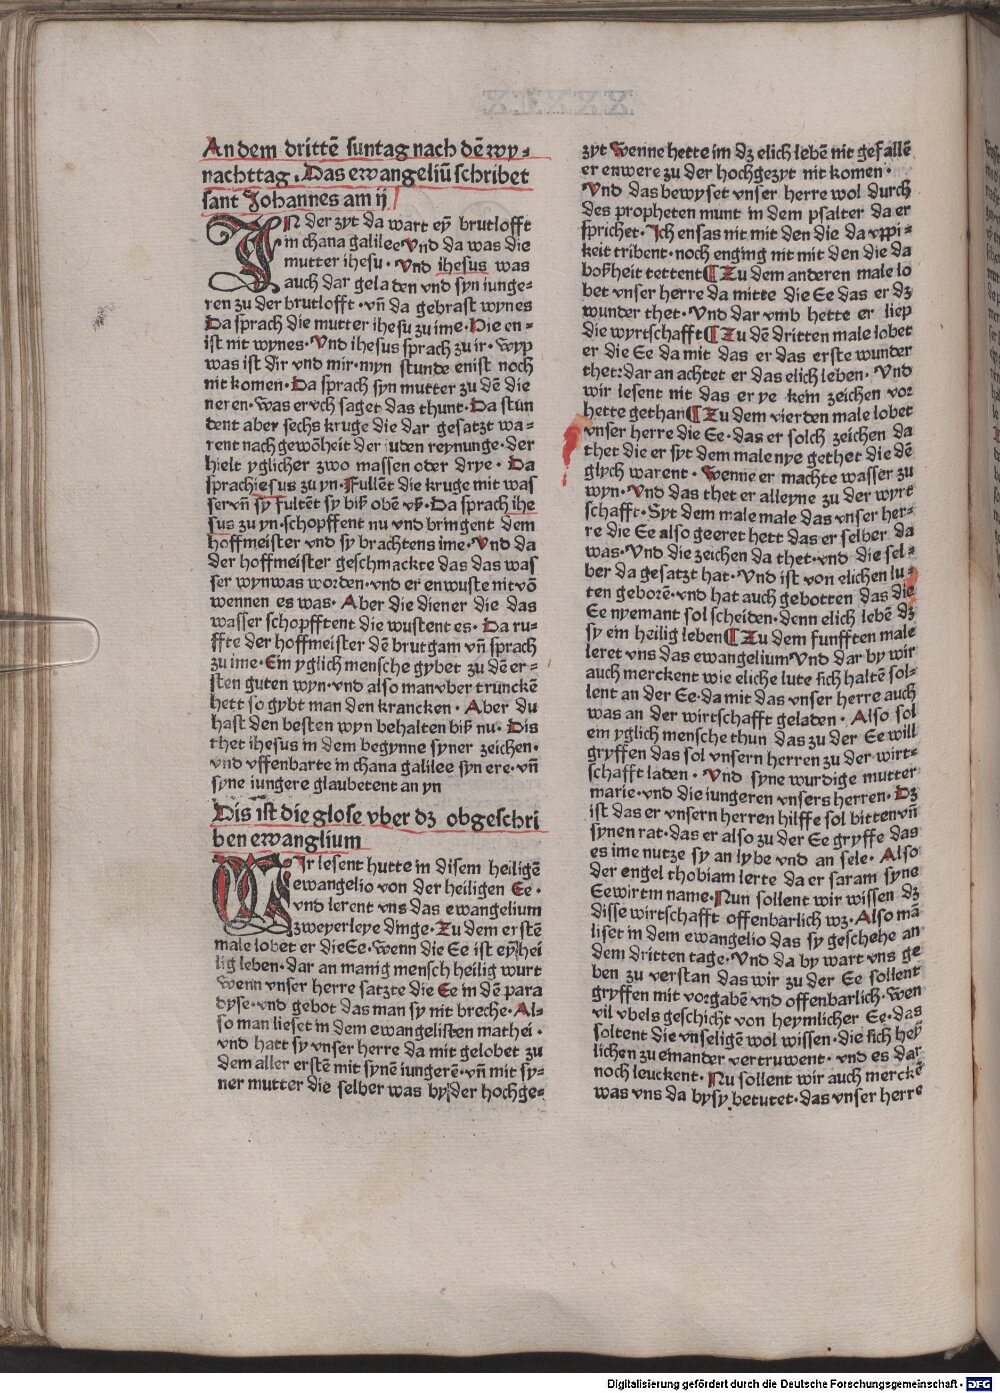 An dem drittē suntag nach dē wy⸗
nachttag. Das ewangeliū schribet
sant Johannes am ij
IN der zyt da wart ey̅ brutlofft
in chana galilee Vnd da was die
mutter ihesu. Vnd ihesus was
auch dar geladen vnd syn iunge⸗
ren zu der brutlofft. vn̅ da gebrast wynes
Da sprach die mutter ihesu zu ime. Hie en⸗
ist nit wynes. Vnd ihesus sprach zu ir. wyp
was ist dir vnd mir. myn stunde enist noch
nit komen. Da sprach syn mutter zu dē die
neren. was er vch saget das thunt. Da stūn
dent aber sechs kruge die dar gesatzt wa⸗
rent nach gewōheit der iuden reynunge. der
hielt yglicher zwo massen oder drye. Da
sprach iesus zu yn. Fullēt die kruge mit was
ser vn̅ sy fultēt sy biß obē vß. Da sprach ihe
sus zu yn. schopffent nu vnd bringent dem
hoffmeister vnd sy brachtens ime. Vnd da
der hoffmeister geschmackte das das was
ser wyn was worden. vnd er enwuste nit vō
wennen es was. Aber die diener die das
wasser schopfftent die wustent es. Da ru⸗
ffte der hoffmeister dē brutgam vn̅ sprach
zu ime. Ein yglich mensche gybet zu dē er⸗
sten guten wyn. vnd also man vber trunckē
hett so gybt man den krancken. Aber du
hast den besten wyn behalten biß nu. Dis
thet ihesus in dem begynne syner zeichen.
vnd vffenbarte in chana galilee syn ere. vn̅
syne iungere glaubetent an yn
Dis ist die glose vber dz obgeschri
ben ewanglium
WIr lesent hutte in disem heiligē
ewangelio von der heiligen Ee.
vnd lerent vns das ewangelium
zweyerleye dinge. Zu dem erstē
male lobet er die Ee. wenn die Ee ist ey̅ hei
lig leben. dar an manig mensch heilig wurt
wenn vnser herre satzte die Ee in dē para
dyse. vnd gebot das man sy nit breche. Al⸗
so man lieset in dem ewangelisten mathei.
vnd hatt sy vnser herre da mit gelobet zu
dem aller erstē mit synē iungerē. vn̅ mit sy⸗
ner mutter die selber was by der hochge⸗
zyt Wenne hette im dz elich lebē nit gefallē
er enwere zu der hochgezyt nit komen.
Vnd das bewyset vnser herre wol durch
des propheten munt in dem psalter da er
sprichet. Ich ensas nit mit den die da vppi⸗
keit tribent. noch enging nit mit den die da
boßheit tettent ¶ Zu dem anderen male lo
bet vnser herre da mitte die Ee das er dz
wunder thet. Vnd dar vmb hette er liep
die wyrtschafft ¶ Zu dē dritten male lobet
er die Ee da mit das er das erste wunder
thet: dar an achtet er das elich leben. Vnd
wir lesent nit das er ye kein zeichen vor
hette gethan ¶ Zu dem vierden male lobet
vnser herre die Ee. das er solch zeichen da
thet die er syt dem male nye gethet die dē
glych warent. Wenne er machte wasser zu
wyn. Vnd das thet er alleyne zu der wyrt
schafft. Syt dem male male das vnser her⸗
re die Ee also geeret hett das er selber da
was. Vnd die zeichen da thet. vnd die sel⸗
ber da gesatzt hat. Vnd ist von elichen lu⸗
ten geborē. vnd hat auch gebotten das die
Ee nyemant sol scheiden. denn elich lebē dz
sy ein heilig leben ¶ Zu dem funfften male
leret vns das ewangelium Vnd dar by wir
auch merckent wie eliche lute sich haltē sol⸗
lent an der Ee. da mit das vnser herre auch
was an der wirtschafft geladen. Also sol
ein yglich mensche thun das zu der Ee will
gryffen das sol vnsern herren zu der wirt⸗
schafft laden. Vnd syne wurdige mutter
marie. vnd die iungeren vnsers herren. Dz
ist das er vnsern herren hilffe sol bitten vn̅
synen rat. das er also zu der Ee gryffe das
es ime nutze sy an lybe vnd an sele. Also
der engel thobiam lerte da er saram syne
Eewirtin name. Nun sollent wir wissen dz
disse wirtschafft offenbarlich wz. Also mā
liset in dem ewangelio das sy geschehe an
dem dritten tage. Vnd da by wart vns ge
ben zu verstan das wir zu der Ee sollent
gryffen mit vorgabē vnd offenbarlich. Wen
vil vbels geschicht von heymlicher Ee. das
soltent die vnseligē wol wissen. die sich hey̅
lichen zu einander vertruwent. vnd es dar
noch leuckent. Nu sollent wir auch merckē
was vns da by sy betutet. das vnser herre
Digitalisierung gefördert durch die Deutsche Forschungsgemeinschaft - DFG